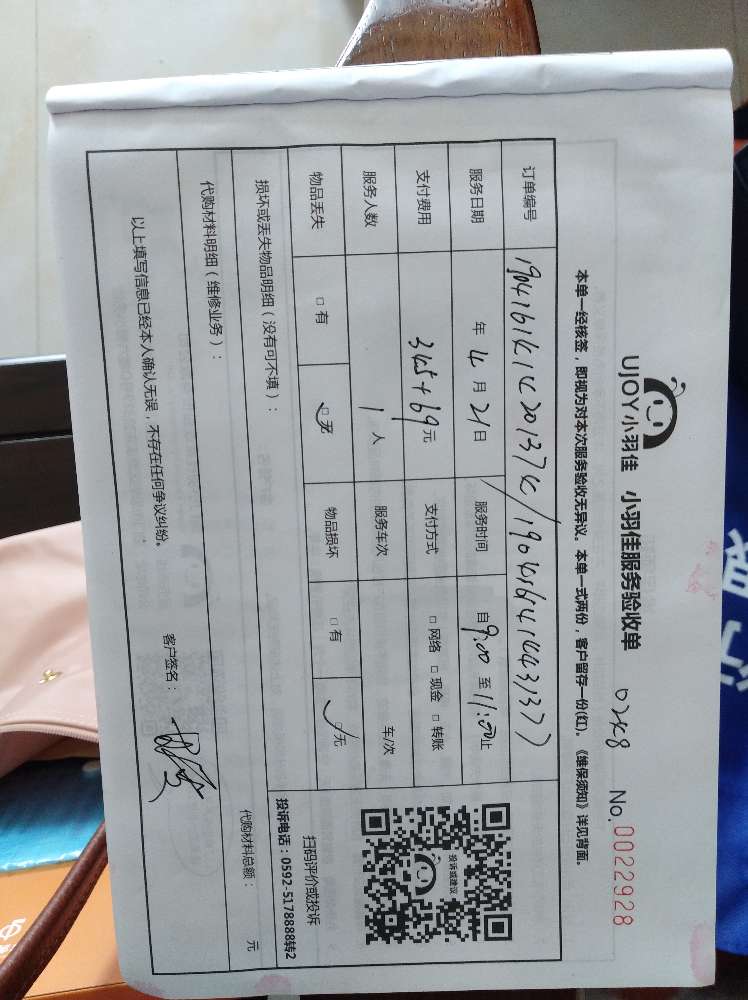 UJOY小羽佳 小羽佳服务验收单 0248 No.0022928
本单一经核签，即视为对本次服务验收无异议。本单一式两份，客户留存一份(红)。《维保须知》详见背面。
订单编号
服务日期 年 4 月 21 日 服务时间 自 9:00 至 11:00 止
支付费用 345+69 元 支付方式 □网络 □现金 □转账
服务人数 1 人 服务车次 车/次
物品丢失 □有 □无 物品损坏 □有 □无
投诉或建议
扫码评价或投诉
投诉电话：0592-5178888转2
损坏或丢失物品明细（没有可不填）：
代购材料明细（维修业务）： 代购材料总额： 元
以上填写信息已经本人确认无误，不存在任何争议纠纷。 客户签名：